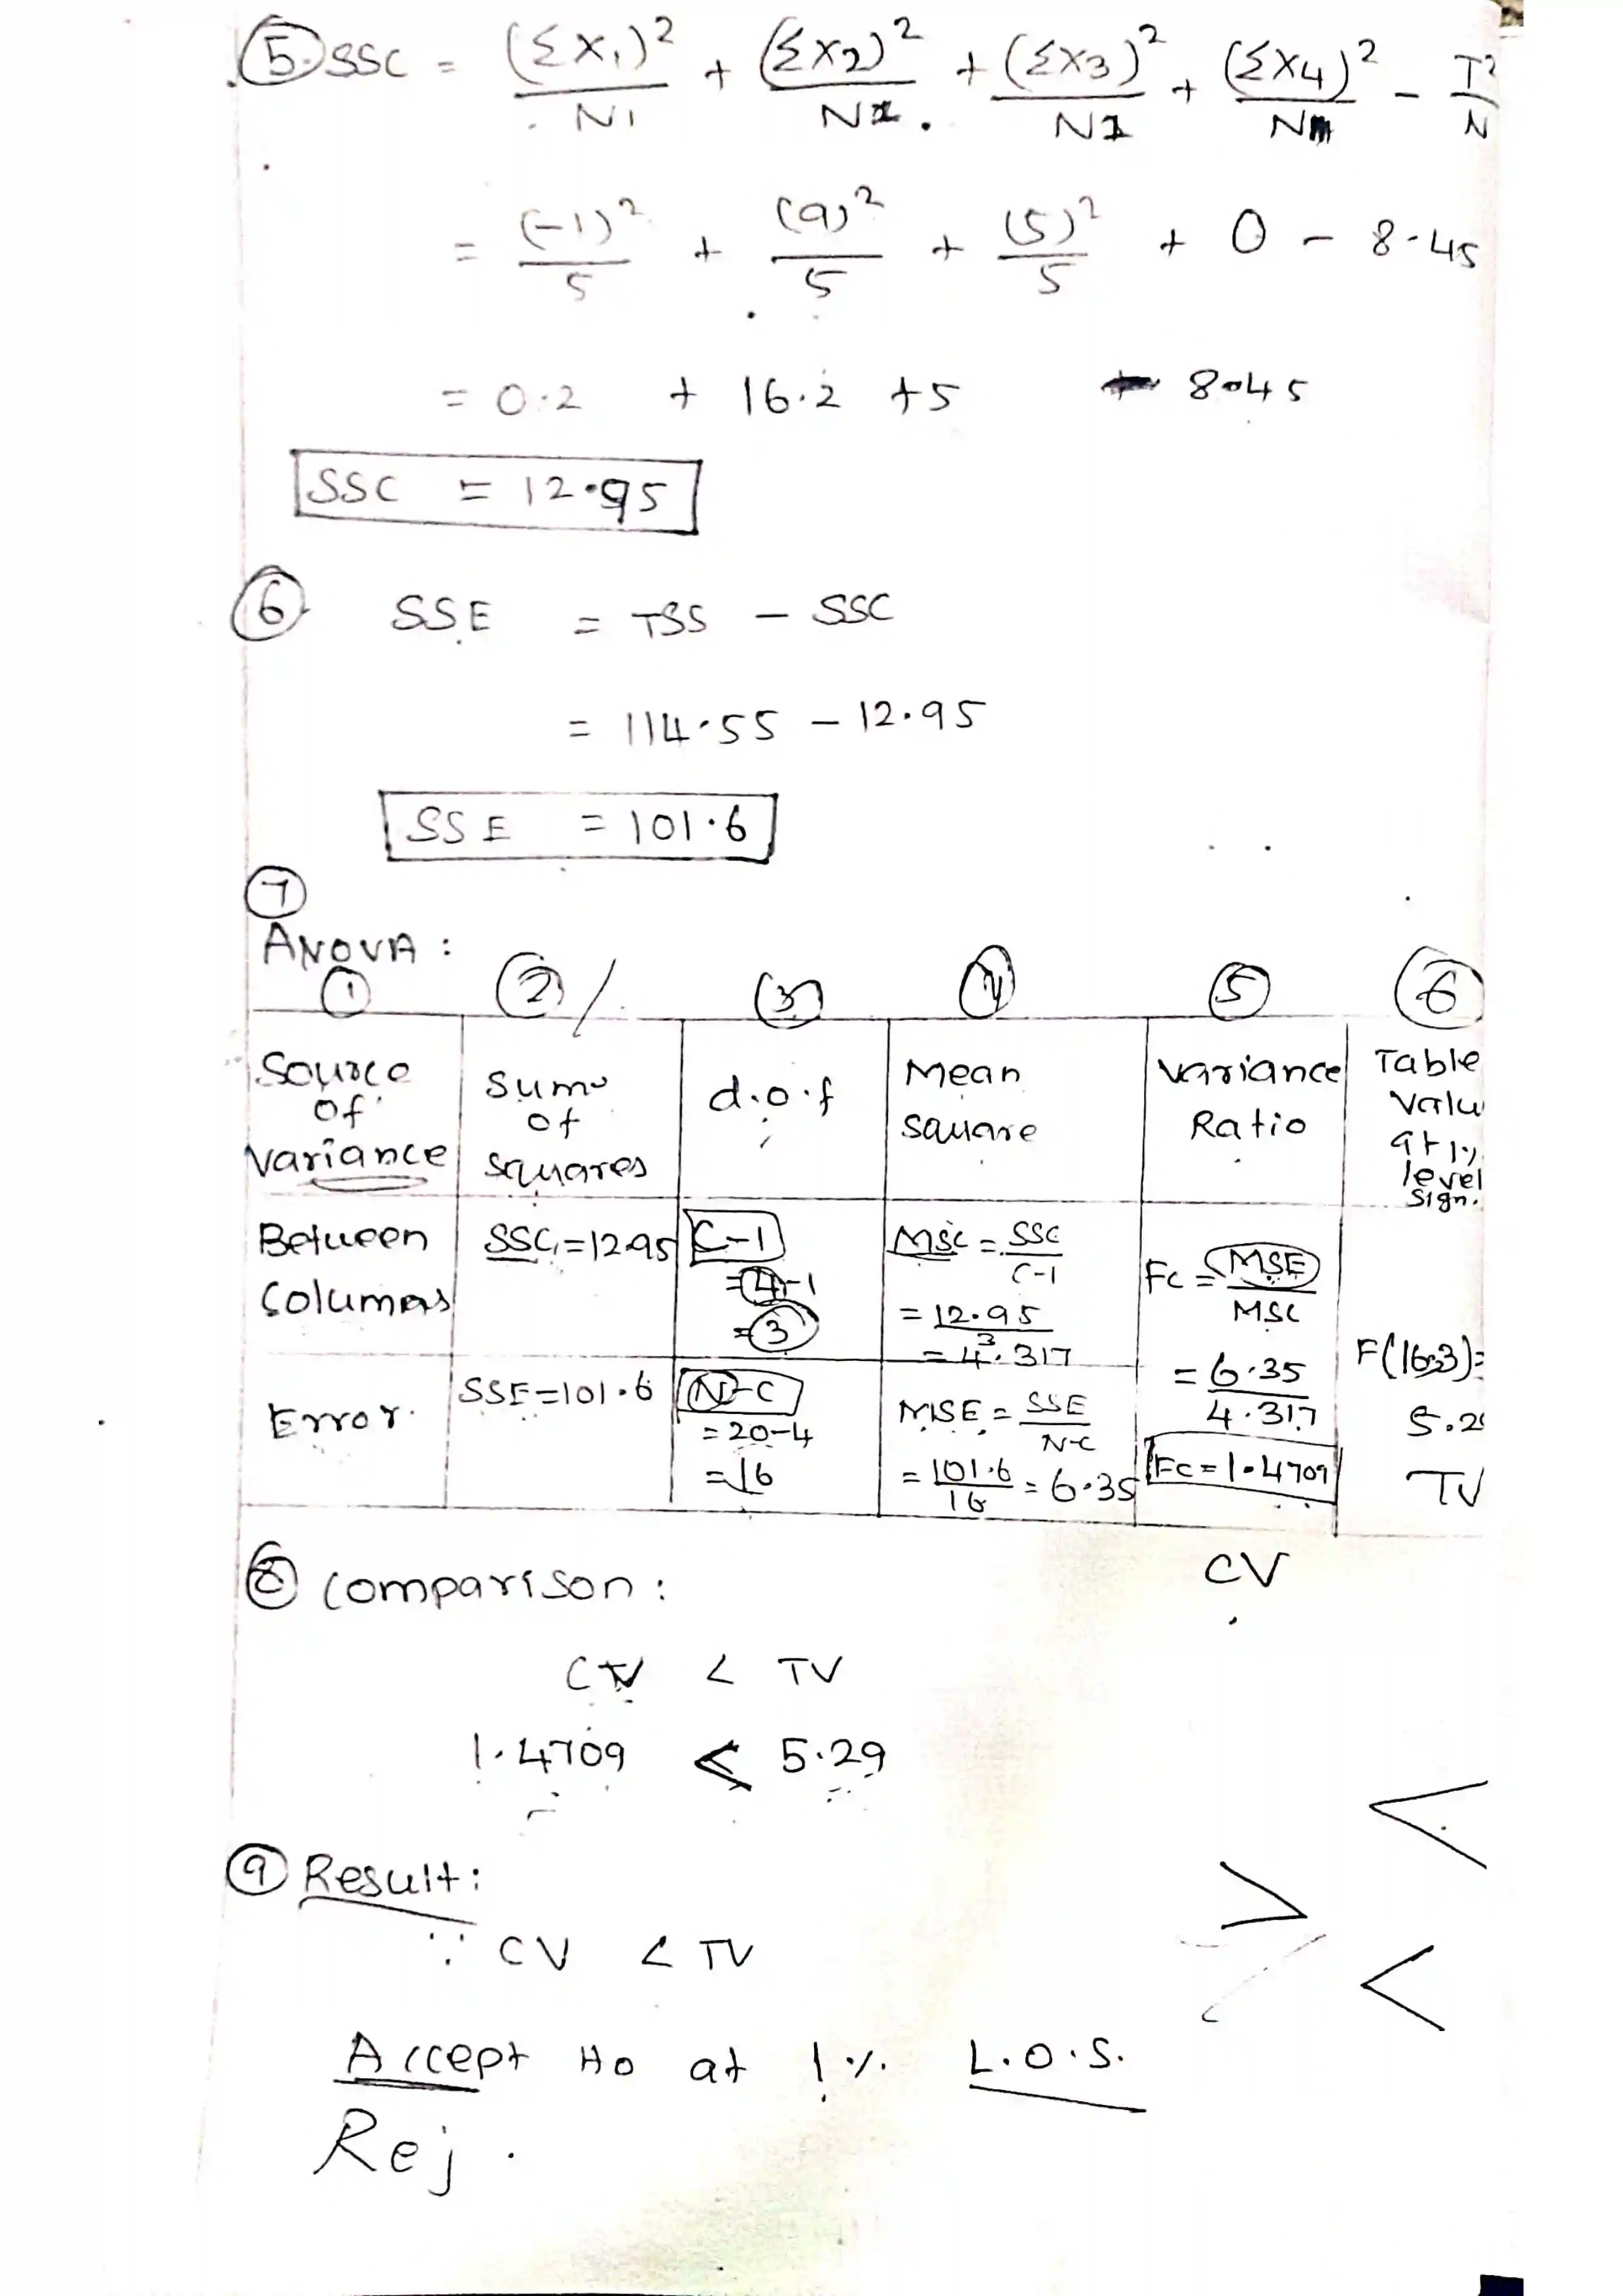 ⑤ SSC = (ΣX₁)²/N1 + (ΣX2)²/N1 + (ΣX3)²/N1 + (ΣX4)²/N - T²/N
= (-1)²/5 + (9)²/5 + (5)²/5 + 0 - 8.45
= 0.2 + 16.2 + 5 - 8.45
SSC = 12.95
⑥ SSE = TSS - SSC
= 114.55 - 12.95
SSE = 101.6
⑦
ANOVA :
① ② ③ ④ ⑤ ⑥
Source of variance
Sum of squares
d.o.f
Mean square
Variance Ratio
Table Valu at 1% level sign.
Between Columns
SSC = 12.95
C-1
= 4-1
= 3
MSC = SSC/C-1
= 12.95/3
= 4.317
Fc = MSE/MSC
= 6.35/4.317
Fc = 1.4709
F(16,3) =
5.29
TV
Error.
SSE = 101.6
N-C
= 20-4
= 16
MSE = SSE/N-C
= 101.6/16 = 6.35
CV
⑧ Comparison :
CV < TV
1.4709 < 5.29
<
⑨ Result :
>
∵ CV < TV
<
Accept Ho at 1% L.O.S.
Rej .